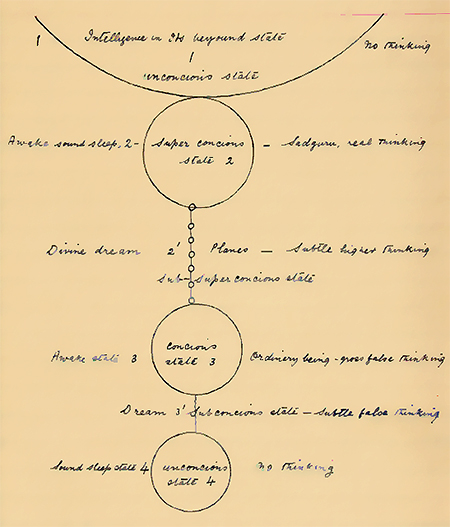 1 Intelligence in Its beyound state No thinking
1
unconcious state
Awake sound sleep, 2 - Super concious - Sadguru, real thinking
state 2
Divine dream 2' Planes - Subtle higher thinking
Sub-Super concious state
concious
Awake state 3 state 3 Ordinery being - gross false thinking
Dream 3' Subconcious state - Subtle false thinking
Sound sleep state 4 unconcious no thinking
state 4